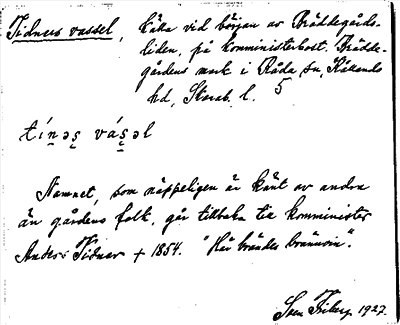 Tidners vassel, kåka vid början av Brädtegårds-
liden, på komministerbost. Brädte-
gårdens mark i Råda sn, Kållands
hd, Skarab. l. 5
tíṇəs̨ vás̨əl
Namnet, som näppeligen är känt av andra
än gårdens folk, går tillbaka till komminister
Anders Tidner + 1854. "Här brändes brännvin".
Sven 1927.